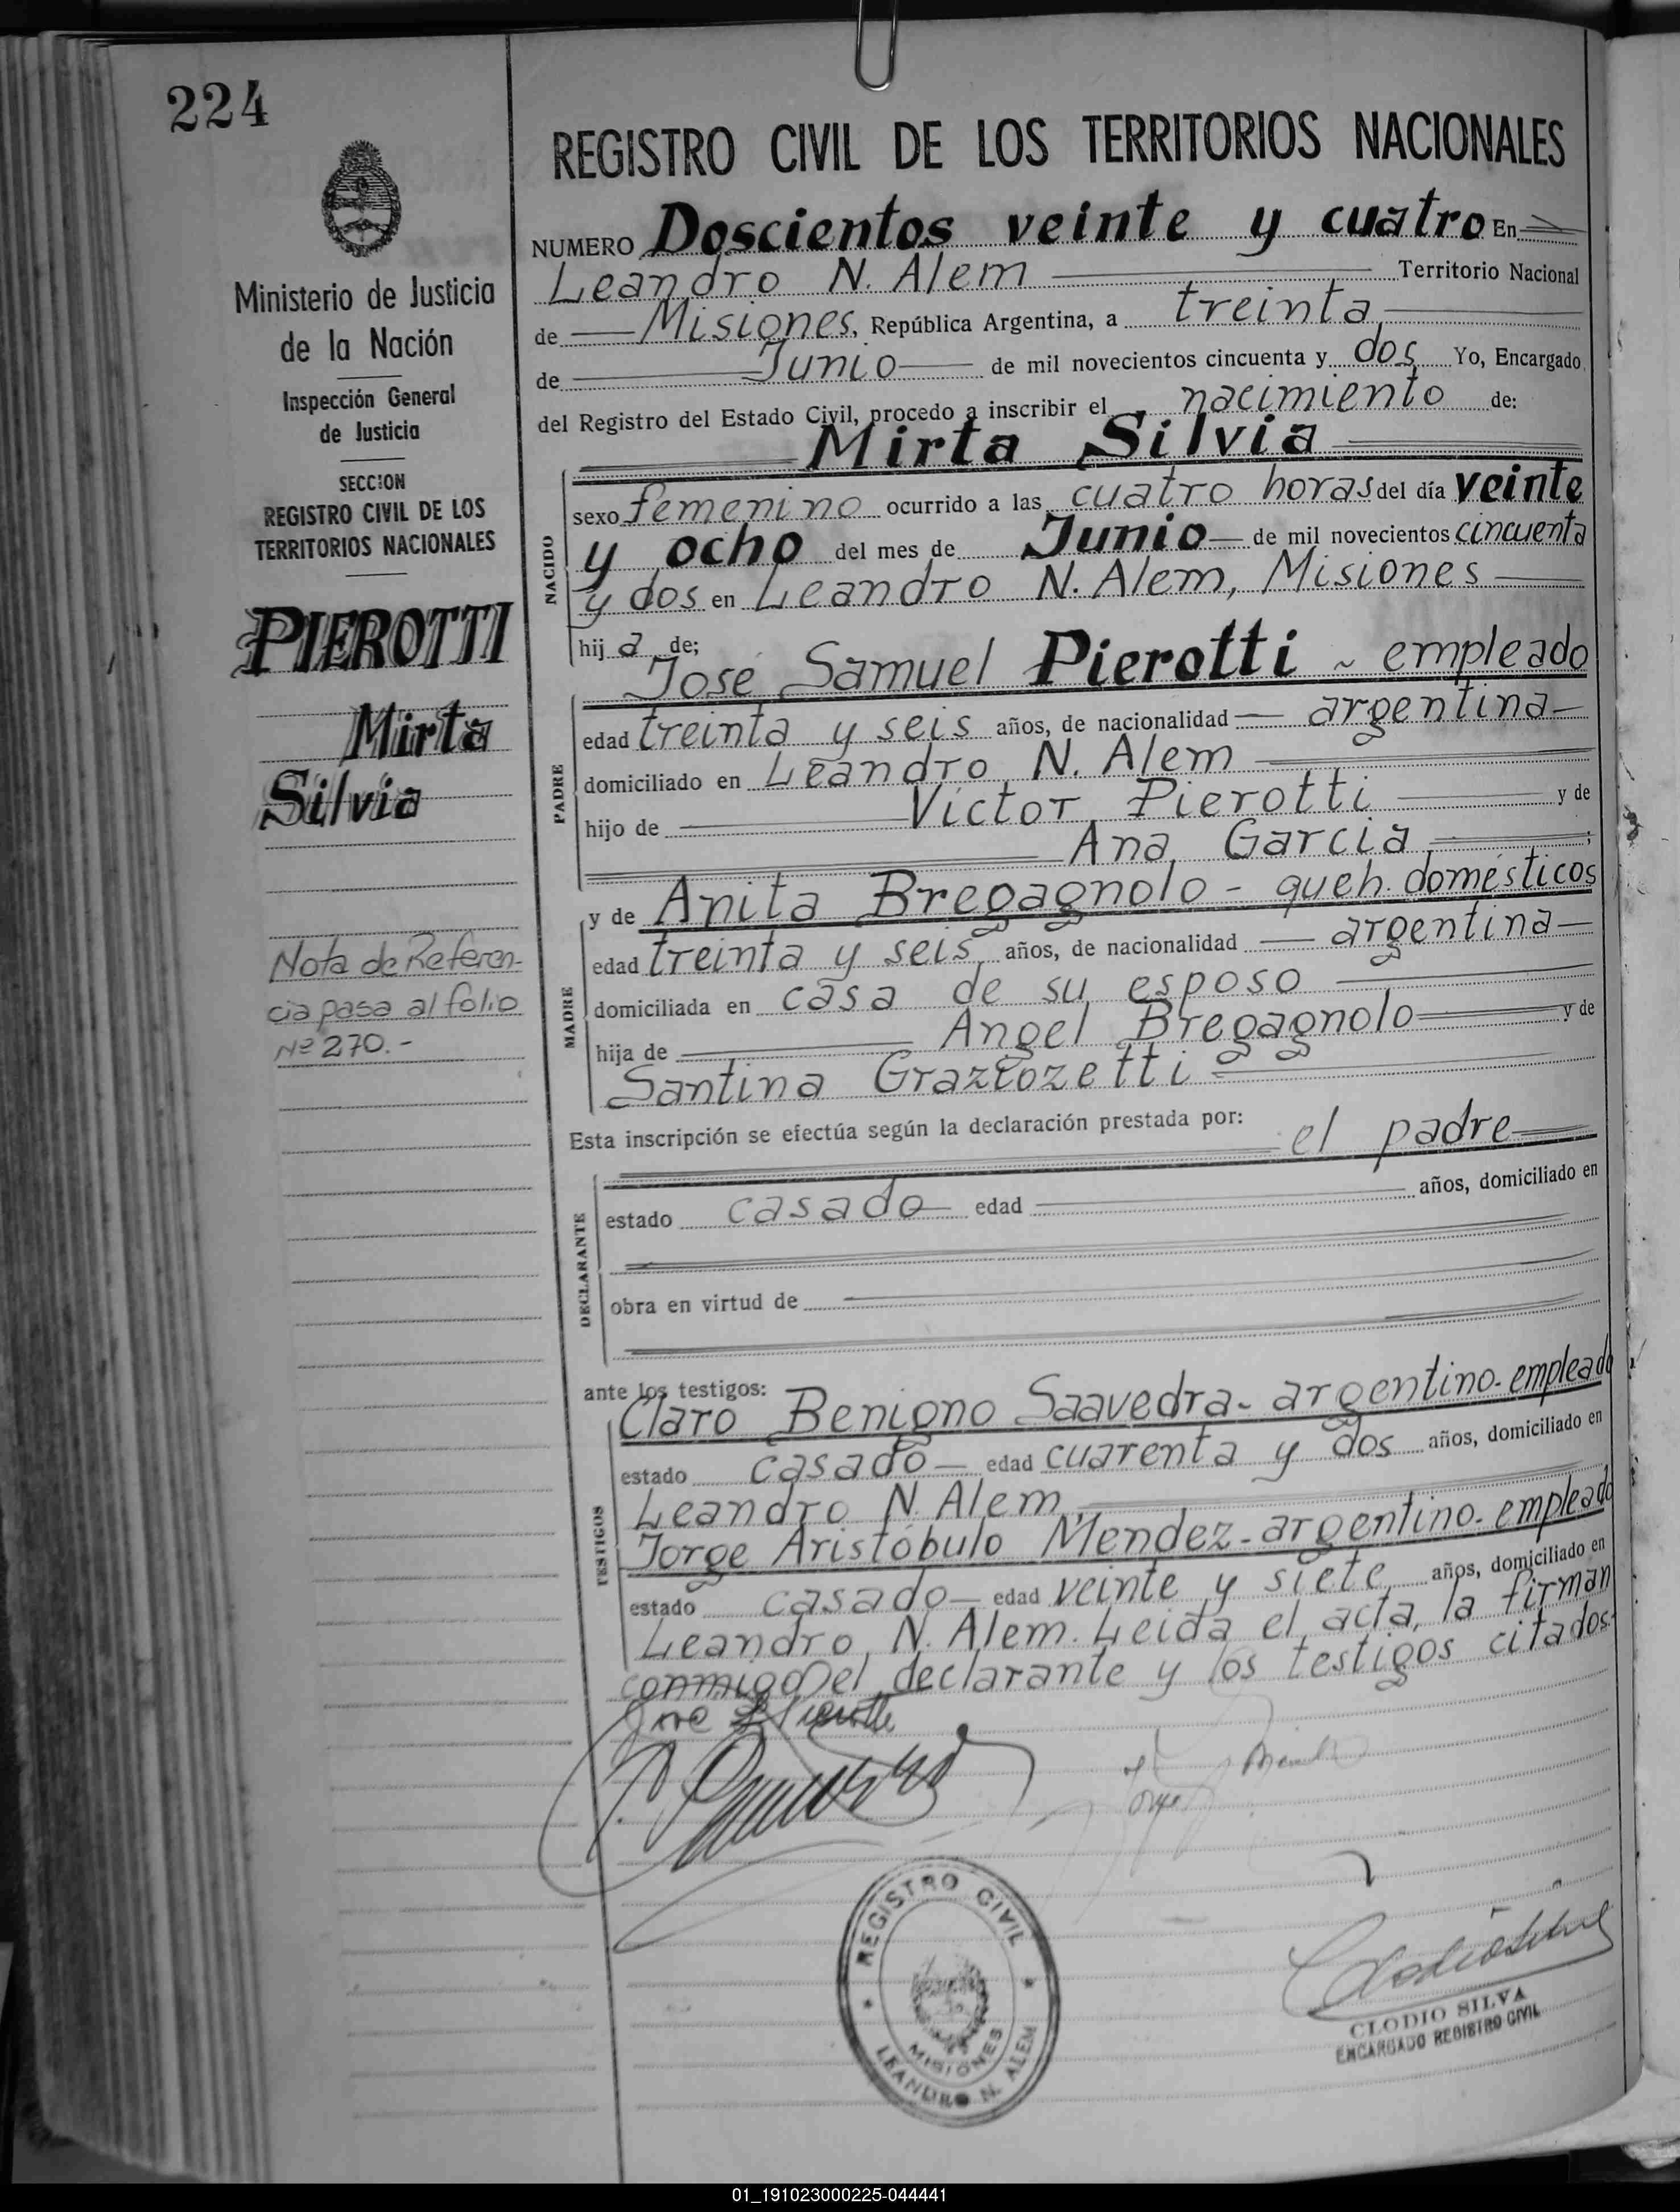 224
Ministerio de Justicia
de la Nación
Inspección General
de Justicia
SECCION
REGISTRO CIVIL DE LOS
TERRITORIOS NACIONALES
PIEROTTI
Mirta
Silvia
Nota de Referen-
cia pasa al folio
Nº 270.-
REGISTRO CIVIL DE LOS TERRITORIOS NACIONALES
NUMERO Doscientos veinte y cuatro En
Leandro N. Alem Territorio Nacional
de Misiones, República Argentina, a treinta
de Junio de mil novecientos cincuenta y dos Yo, Encargado
del Registro del Estado Civil, procedo a inscribir el nacimiento de:
Mirta Silvia
NACIDO
sexo femenino ocurrido a las cuatro horas del día veinte
y ocho del mes de Junio de mil novecientos cincuenta
y dos en Leandro N. Alem, Misiones
hija de;
José Samuel Pierotti ~ empleado
PADRE
edad treinta y seis años, de nacionalidad argentina
domiciliado en Leandro N. Alem
hijo de Víctor Pierotti y de
Ana Garcia;
y de Anita Bregagnolo - queh. domésticos
MADRE
edad treinta y seis años, de nacionalidad argentina
domiciliada en casa de su esposo
hija de Angel Bregagnolo y de
Santina
Esta inscripción se efectúa según la declaración prestada por: el padre
DECLARANTE
estado casado edad años, domiciliado en
obra en virtud de
ante los testigos:
Claro Benigno Saavedra - argentino - empleado
TESTIGOS
estado casado edad cuarenta y dos años, domiciliado en
Leandro N. Alem
Jorge Aristóbulo Mendez - argentino - empleado
estado casado edad veinte y siete años, domiciliado en
Leandro N. Alem. Leida el acta, la firman
conmigo el declarante y los testigos citados.
REGISTRO CIVIL
MISIONES
LEANDRO N. ALEM
CLODIO SILVA
ENCARGADO REGISTRO CIVIL
01_191023000225-044441